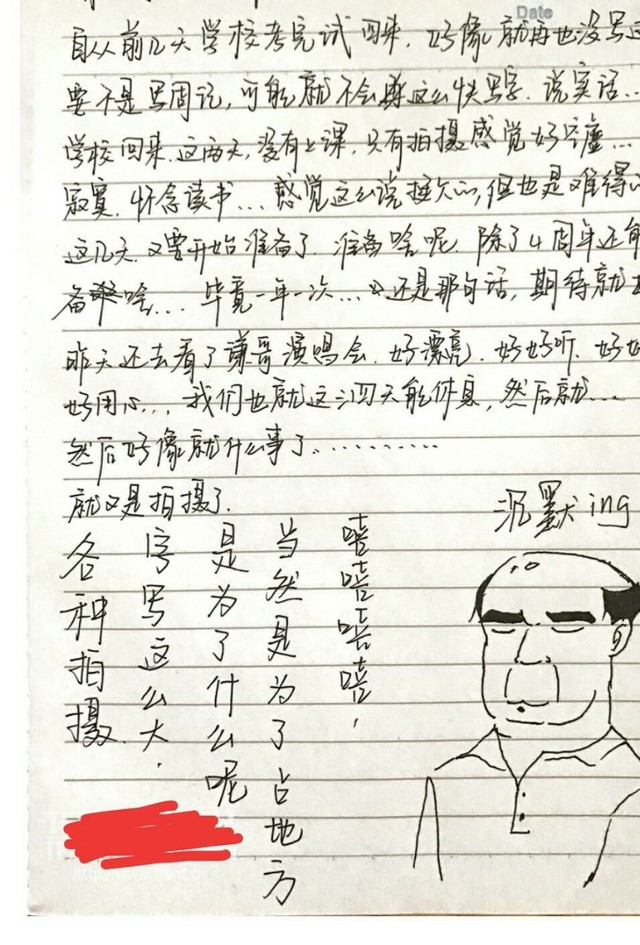 Date
自从前几天学校考完试回来，好像就再也没写这
要不是写周记，可能就不会再这么快写字．说实话．．
学校回来．这两天，没有上课．只有拍摄感觉好空虚．．．
寂寞．怀念读书．．．感觉这么说挺欠的，但也是难得
这几天．又要开始准备了．准备啥呢．除了4周年还能
备啥．．．毕竟一年一次．．．还是那句话，期待就
昨天还去看了谦哥演唱会．好漂亮．好好听．好
好用心．．．我们也就这三四天能休息，然后就．．．．
然后好像就什么事了．．．．．．．．．．．
就又是拍摄了．
沉默ing
各种拍摄．
字写这么大．
是为了什么呢
当然是为了占地方
嘻嘻嘻嘻，